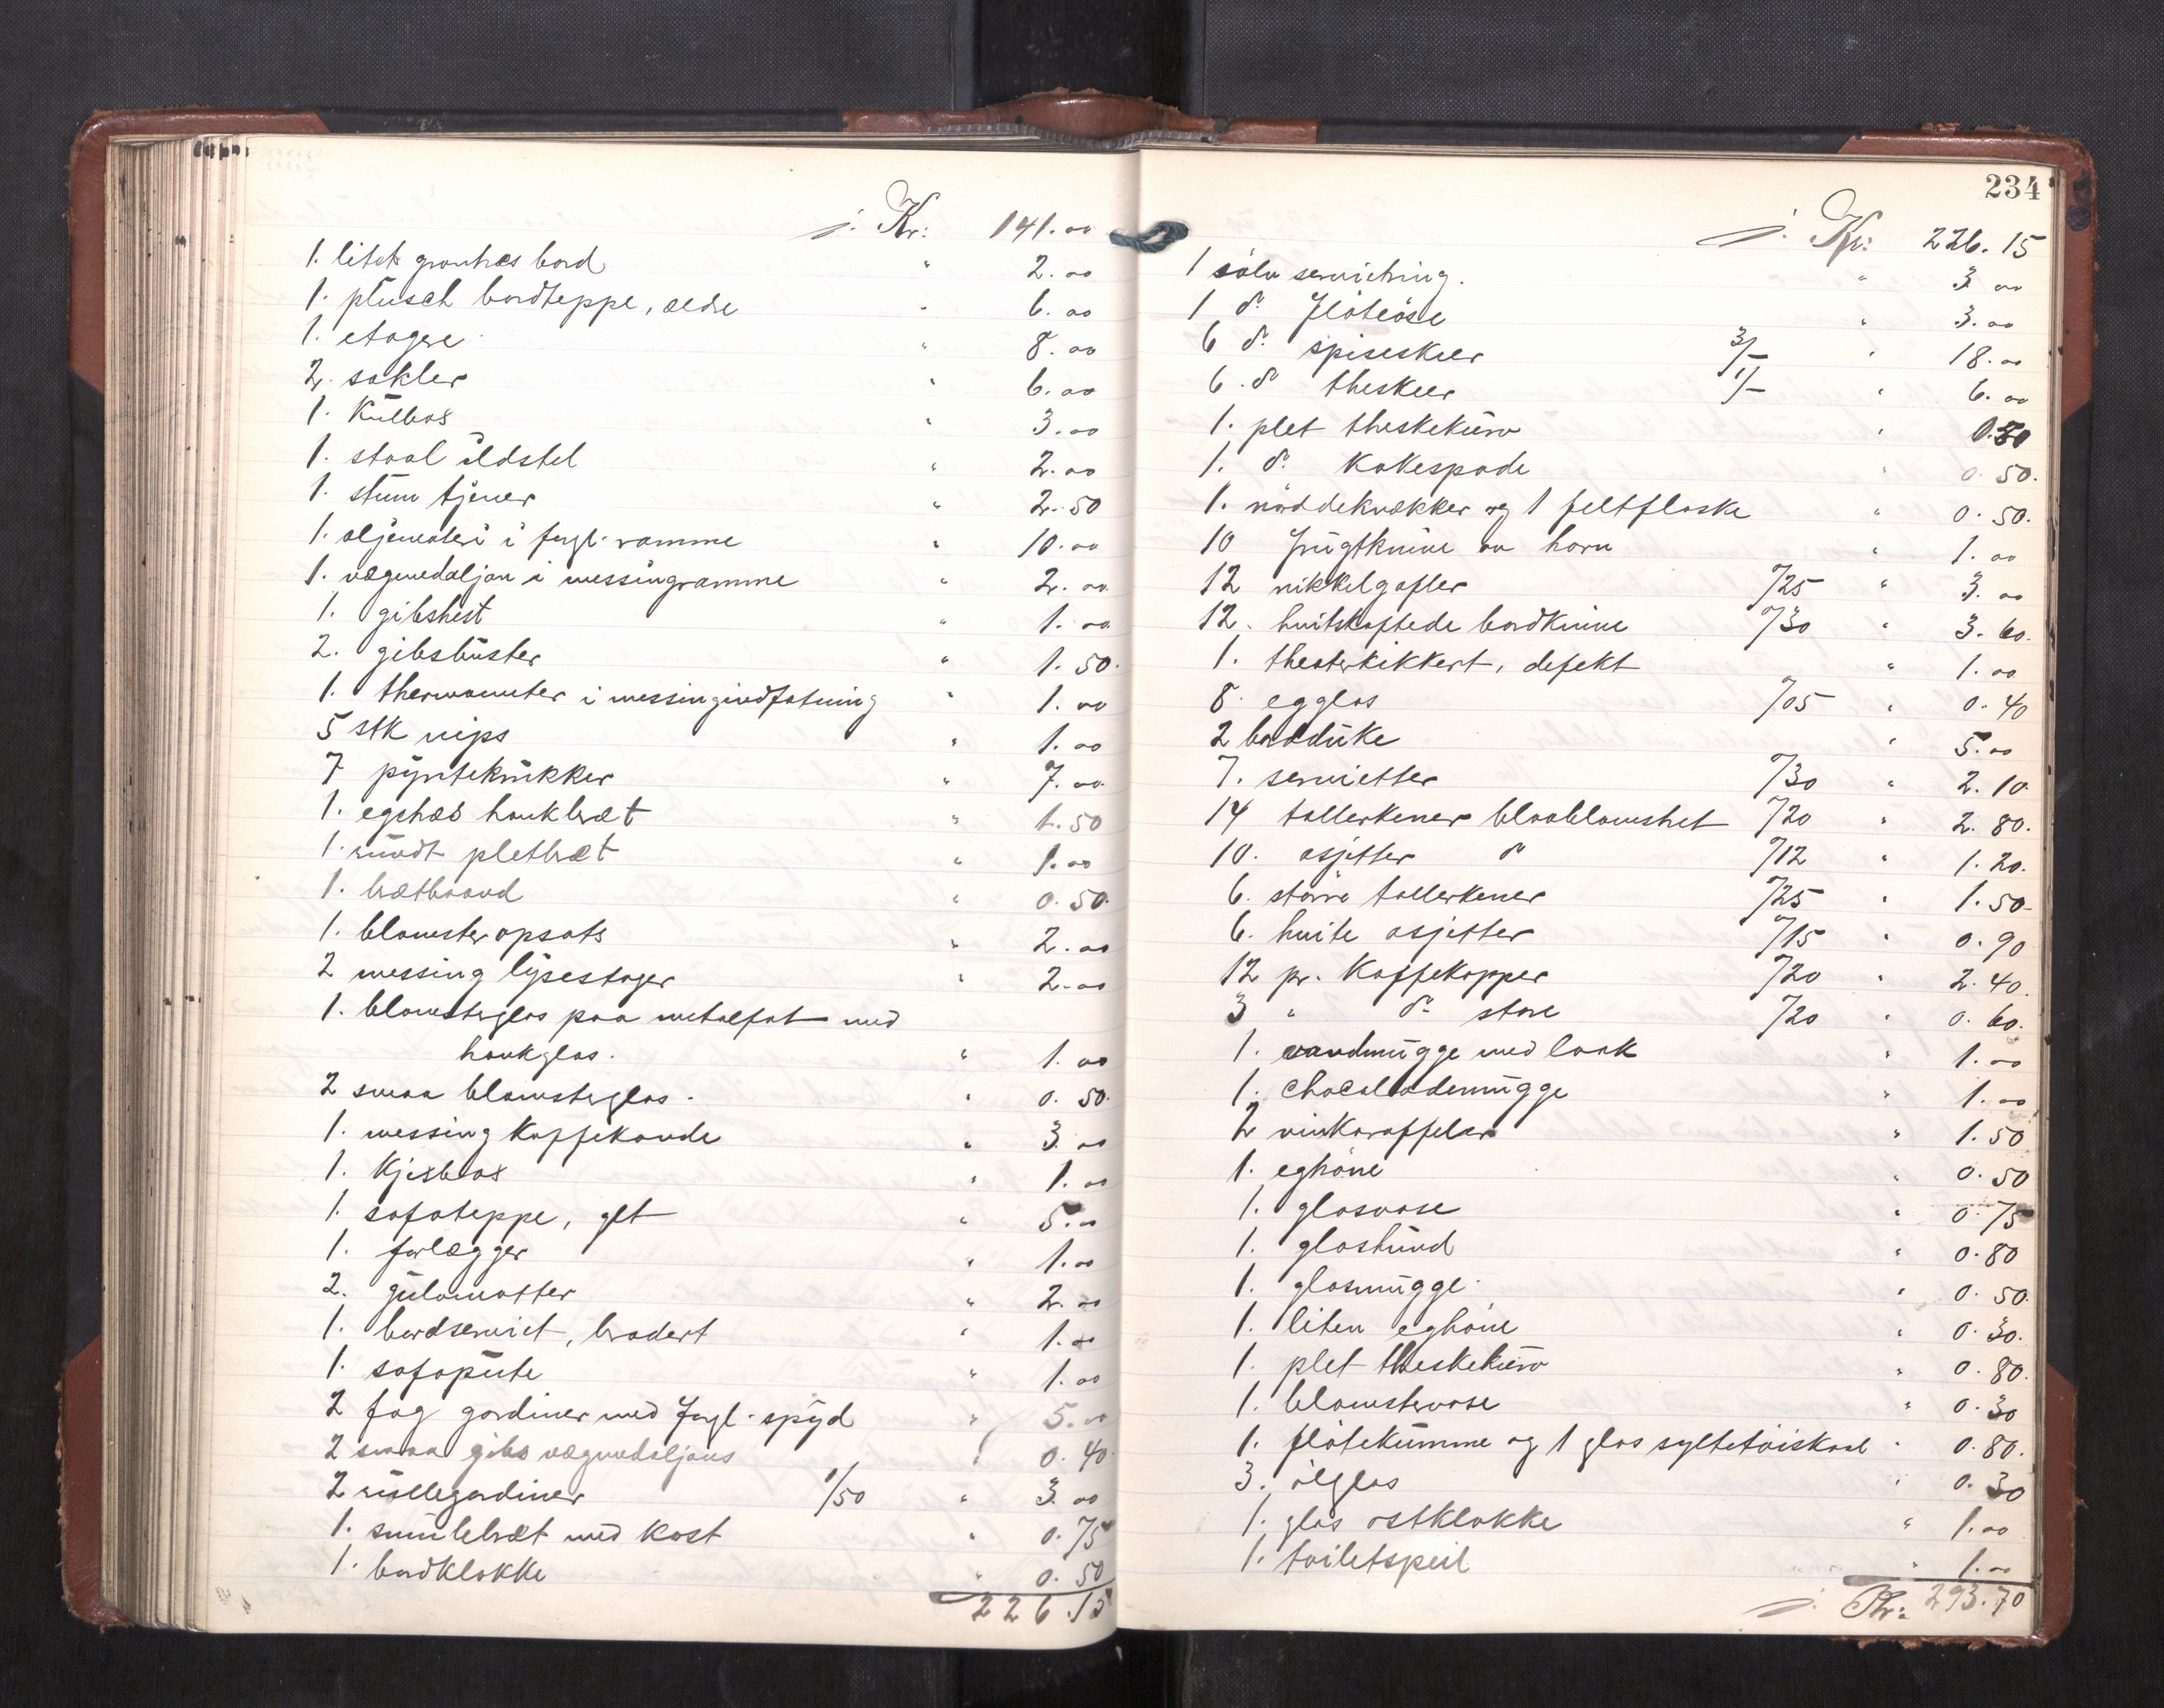 j. Kr: 141.00
1. litet grantræs bord " 2.00
1. plüsch bordteppe, ældre " 6.00
1. etagere " 8.00
2. sokler " 6.00
1. Kulboks " 3.00
1. staal ildstel " 2.00
1. stum tjener " 2.50
1. oljemaleri i forgl. ramme " 10.00
1. vægmedaljon i messingramme " 2.00
1. gibshest " 1.00
2. gibsbuster " 1.50.
1. thermometer i messingindfatning " 1.00
5 stk nips " 1.00
7 pyntekrukker " 7.00
1. egetræs hankbræt " 1.50
1. rundt pletbræt " 1.00
1. brætbaand " 0.50.
1. blomsteropsats " 2.00
2 messing lysestager " 2.00
1. blomsterglas paa metalfat med
hankglas. " 1.00
2 smaa blomsterglas. " 0.50.
1. messing Kaffekande " 3.00
1. Kjeks " 1.00
1. sofateppe, " 5.00
1. forlægger " 1.00
2. gulvmatter " 2.00
1. bordserviet, brodert " 1.00
1. sofapute " 1.00
2 fag gardiner med forgl. spyd " 5.00
2 smaa gibs vægmedaljons " 0.40.
2 rullegardiner 1/50 " 3.00
1. smulebræt med Kost " 0.75
1. bordklokke " 0.50
226.15
234
j. Kr: 226.15
1 sølv servietring. " 3.00
1 do. fløteøse " 3.00
6 do. spiseskeer 3/- " 18.00
6. do. theskeer 1/- " 6.00
1. plet theskekurv " 0.80
1. do. Kakespade " 0.50.
1. nøddeknækker og 1 feltflaske " 0.50.
10 frugtknive av horn " 1.00
12 nikkelgafler 0/25 " 3.00
12. hvitskaftede bordknive 0/30 " 3.60.
1. theaterkikkert, defekt " 1.00
8. egglas 0/05 " 0.40
2 bordduke " 5.00
7. servietter 0/30 " 2.10.
14 tallerkener blaablomstret 0/20 " 2.80.
10. asjetter do 0/12 " 1.20.
6. større tallerkener 0/25 " 1.50
6. hvite asjetter 0/15 " 0.90
12 pr. Kaffekopper 0/20 " 2.40.
3 " do. store 0/20 " 0.60.
1. vandmugge med laak " 1.00
1. chocolademugge " 1.00
2 vinkarafler " 1.50
1. eghøne " 0.50
1. glasvase " 0.75
1. glashund " 0.80
1. glasmugge. " 0.50.
1. liten eghøne " 0.30.
1. plet theskekurv " 0.80.
1. blomstervase " 0.30
1. fløtekumme og 1 glas syltetøiskaal " 0.80.
3. ølglas " 0.30
1. glas ostklokke " 1.00
1. toiletspeil " 1.00
j. Kr: 293.70